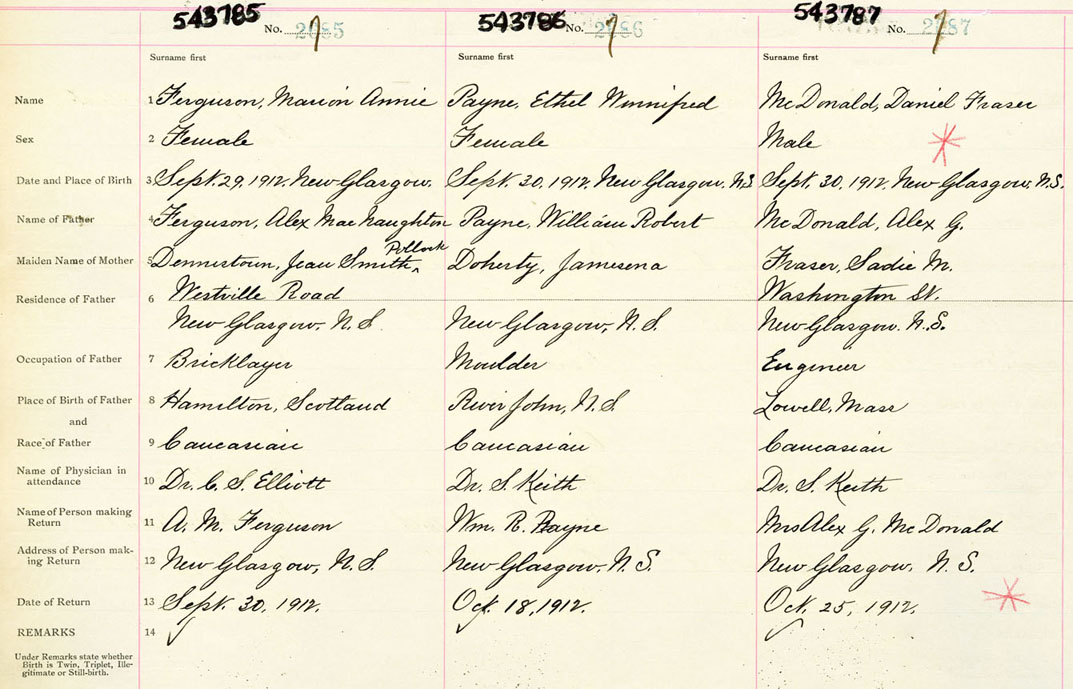 543785 No. 2085 543786 No. 2086 543787 No. 2087
Surname first Surname first Surname first
Name 1 Ferguson, Marion Annie Payne, Ethel Winnifred McDonald, Daniel Fraser
Sex 2 Female Female Male
Date and Place of Birth 3 Sept. 29, 1912. New Glasgow. Sept. 30, 1912. New Glasgow. N.S Sept. 30, 1912. New Glasgow, N.S.
Name of Father 4 Ferguson, Alex MacNaughton Payne, William Robert McDonald, Alex G.
Pollock
Maiden Name of Mother 5 Dennistoun, Jean Smith ‸ Doherty, Jamesena Fraser, Sadie M.
Residence of Father 6 Westville Road Washington St.
New Glasgow, N.S. New Glasgow, N.S. New Glasgow. N.S.
Occupation of Father 7 Bricklayer Moulder Engineer
Place of Birth of Father 8 Hamilton, Scotland River John, N.S Lowell, Mass
and
Race of Father 9 Caucasian Caucasian Caucasian
Name of Physician in
attendance 10 Dr. C. S. Elliott Dr. S. Keith Dr. S. Keith
Name of Person making
Return 11 A. M. Ferguson Wm. R. Payne Mrs Alex G. McDonald
Address of Person mak-
ing Return 12 New Glasgow, N.S. New Glasgow. N.S. New Glasgow, N.S.
Date of Return 13 Sept. 30, 1912. Oct. 18, 1912. Oct. 25, 1912.
REMARKS 14
Under Remarks state whether
Birth is Twin, Triplet, Ille-
gitimate or Still-birth.